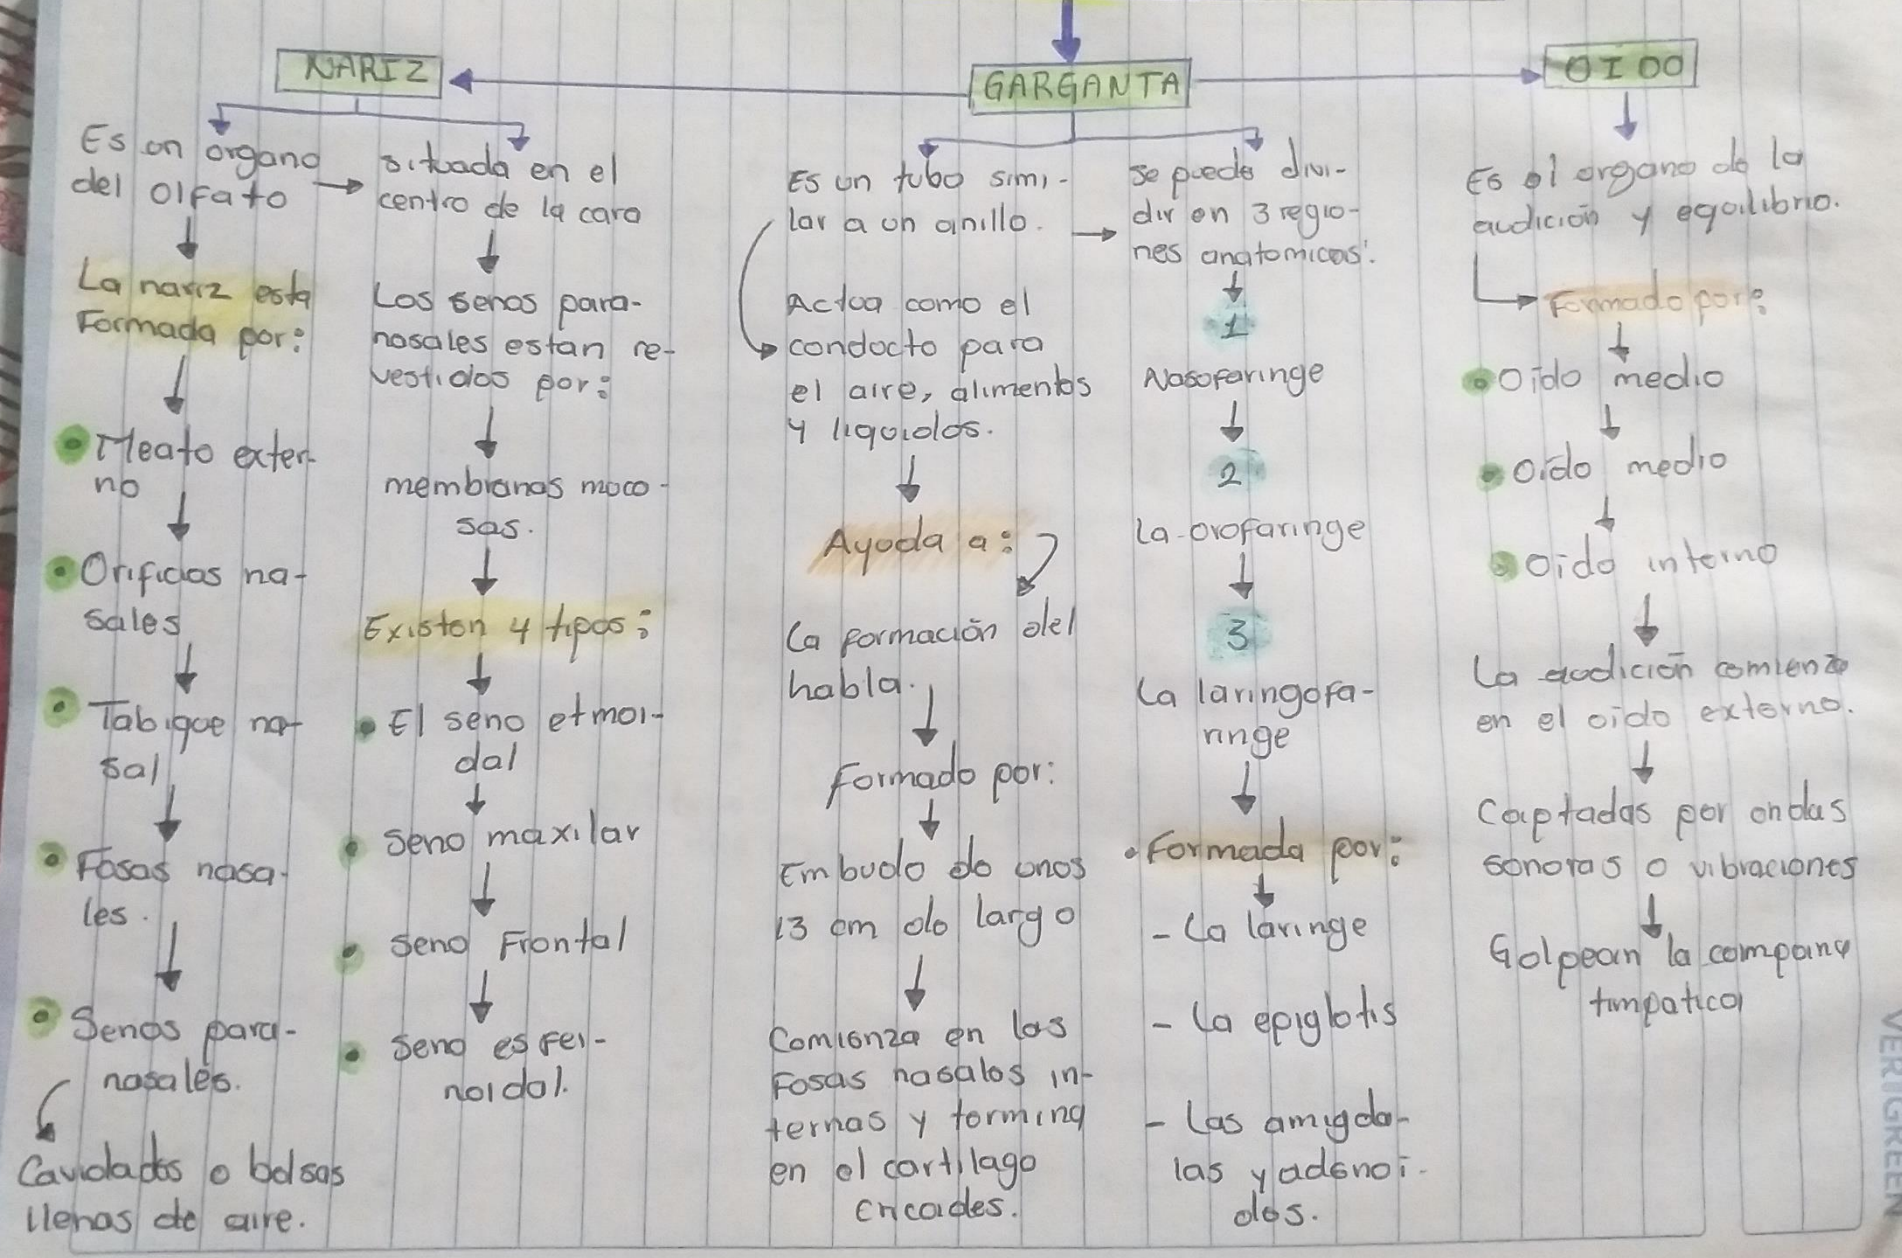 NARIZ
Es un organo
del olfato
La nariz esta
Formada por:
Meato exter-
no
Orificios na-
sales
Tabique na-
sal
Fosas nasa-
les.
Senos para-
nasales.
Cavidades o bolsas
llenas de aire.
situada en el
centro de la cara
Los senos para-
nasales estan re-
vestidos por:
membranas moco-
sas.
Existen 4 tipos:
El seno etmoi-
dal
seno maxilar
seno Frontal
seno esfei-
noidal.
GARGANTA
Es un tubo simi-
lar a un anillo.
Actua como el
conducto para
el aire, alimentos
y liquidos.
Ayuda a:
La formación del
habla.
Formado por:
Embudo de unos
13 cm de largo
Comienza en las
Fosas nasales in-
ternas y termina
en el cartilago
cricoides.
se puede divi-
dir en 3 regio-
nes anatomicas:
1
Nasofaringe
2
La orofaringe
3
La laringofa-
ringe
Formada por:
- La laringe
- La epiglotis
- Las amigda-
las y adenoi-
des.
OIDO
Es el organo de la
audición y equilibrio.
Formado por:
Oido medio
Oído medio
Oido interno
La audición comienza
en el oido externo.
Captadas por ondas
sonoras o vibraciones
Golpean la compana
timpatica
VERIGREEN